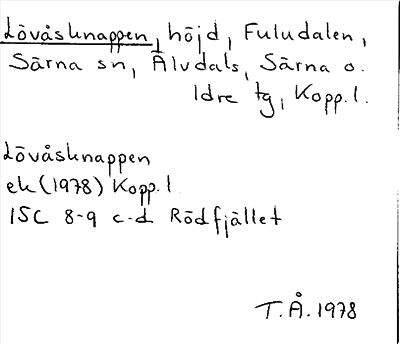 Lövåsknappen, höjd, Fuludalen,
Särna sn, Älvdals, Särna o.
Idre tg, Kopp. l.
Lövåsknappen
ek (1978) Kopp. l
15C 8-9 c-d Rödfjället
T.Å. 1978